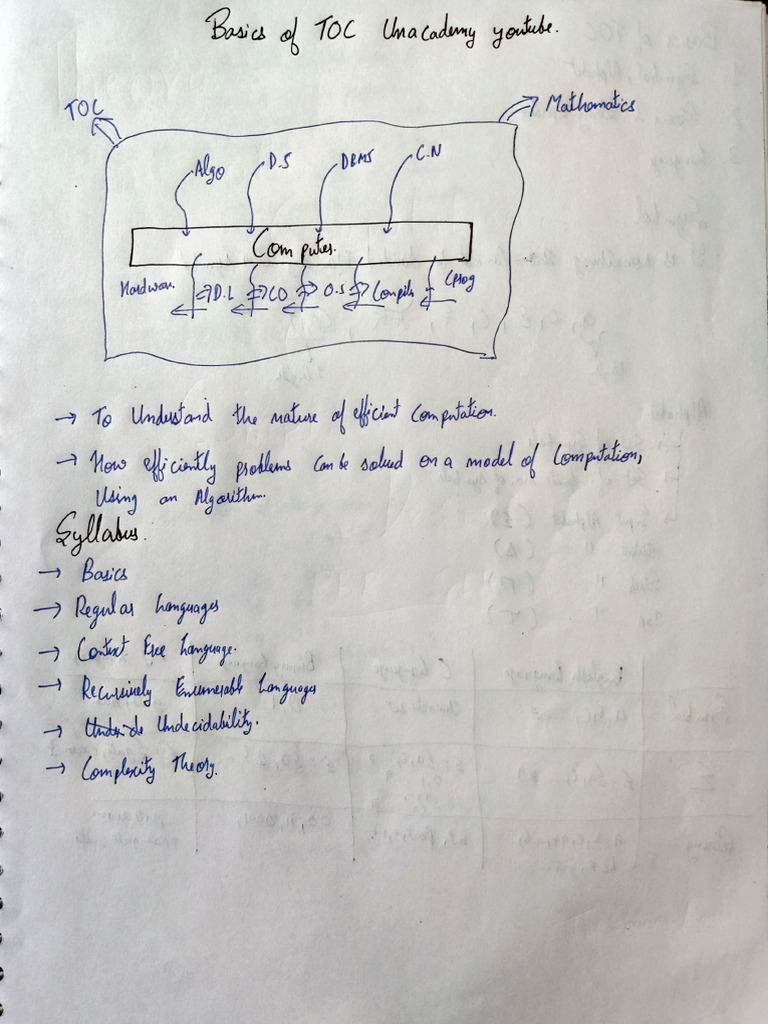 Basics of TOC Unacademy youtube.
TOC
Mathematics
Algo D.S DBMS C.N
Computer.
Hardwar. D.L CO O.S Compile Cprog
→ To Understand the nature of efficient Computation.
→ How efficiently problems can be solved on a model of Computation,
Using an Algorithm.
Syllabus.
→ Basics
→ Regular Languages
→ Context Free Language.
→ Recursively Enumerable Languages
→ Undecidability.
→ Complexity Theory.